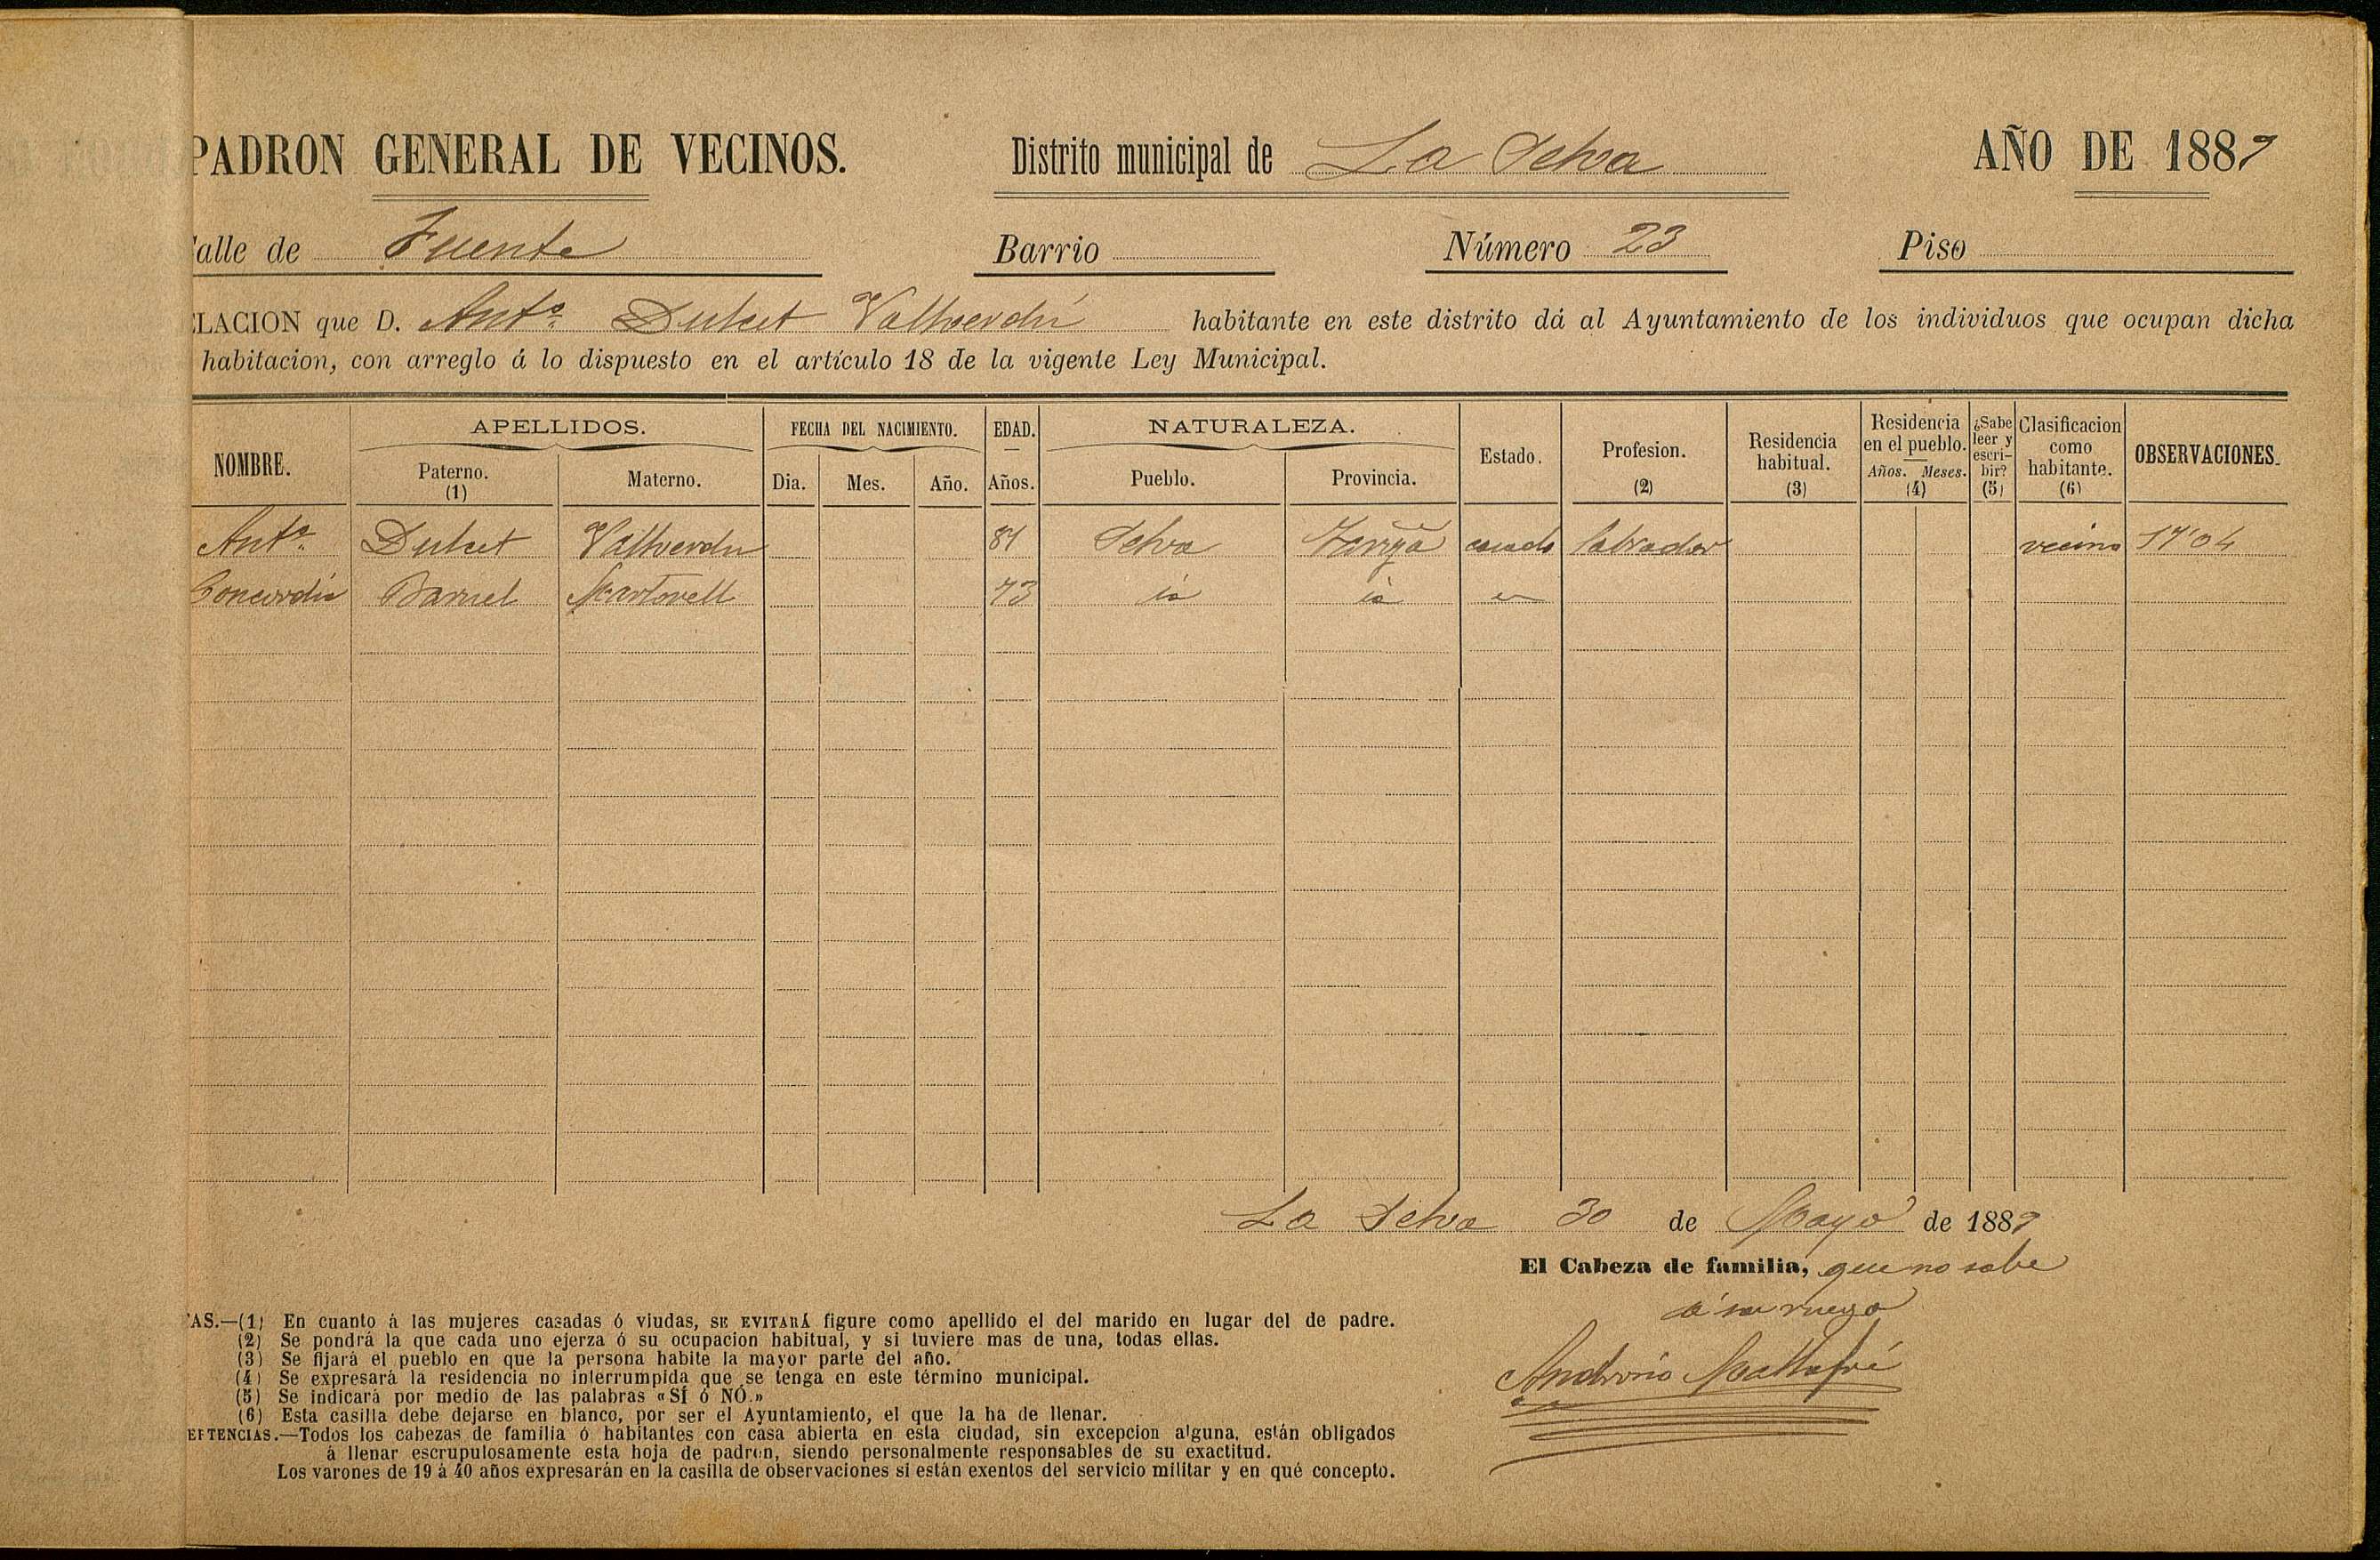 PADRON GENERAL DE VECINOS. Distrito municipal de La Selva AÑO DE 1889
alle de Fuente Barrio Número 23 Piso
LACION que D. Antº Dulcet Vallverdú habitante en este distrito dá al Ayuntamiento de los individuos que ocupan dicha
habitacion, con arreglo á lo dispuesto en el artículo 18 de la vigente Ley Municipal.
NOMBRE. APELLIDOS. FECHA DEL NACIMIENTO. EDAD. NATURALEZA. Estado. Profesion. (2) Residencia habitual. (3) Residencia en el pueblo. Años. Meses. (4) ¿Sabe leer y escribir? (5) Clasificacion como habitante. (6) OBSERVACIONES.
Paterno. (1) Materno. Dia. Mes. Año. Años. Pueblo. Provincia.
Antº Dulcet Vallverdu 81 Selva casado labrador vecino 17'04
Concordia Barnel Martorell 73 id id
La Selva 30 de Mayo de 1889
El Cabeza de familia, que no sabe
á su ruego
Antonio Mallafré
AS.—(1) En cuanto á las mujeres casadas ó viudas, SE EVITARÁ figure como apellido el del marido en lugar del de padre.
(2) Se pondrá la que cada uno ejerza ó su ocupacion habitual, y si tuviere mas de una, todas ellas.
(3) Se fijará el pueblo en que la persona habite la mayor parte del año.
(4) Se expresará la residencia no interrumpida que se tenga en este término municipal.
(5) Se indicará por medio de las palabras «SÍ ó NÓ.»
(6) Esta casilla debe dejarse en blanco, por ser el Ayuntamiento, el que la ha de llenar.
ERTENCIAS.—Todos los cabezas de familia ó habitantes con casa abierta en esta ciudad, sin excepcion alguna, están obligados
á llenar escrupulosamente esta hoja de padron, siendo personalmente responsables de su exactitud.
Los varones de 19 á 40 años expresarán en la casilla de observaciones si están exentos del servicio militar y en qué concepto.